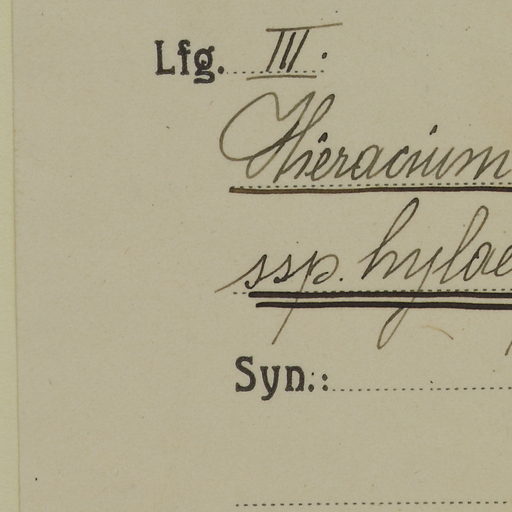 Lfg. III.
Hieracium
ssp. hylae
Syn.: